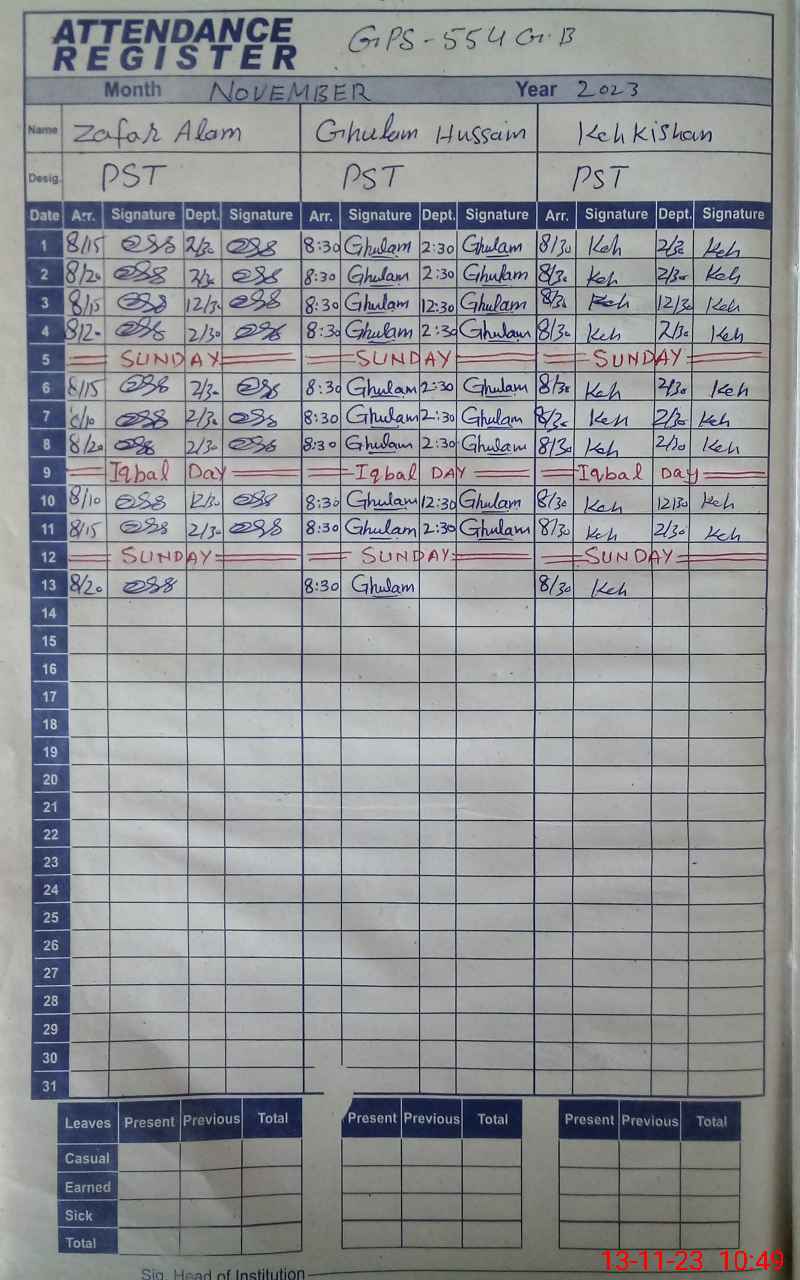 ATTENDANCE REGISTER GPS-554 G.B
Month NOVEMBER Year 2023
Name Zafar Alam Ghulam Hussain Kehkishan
Desig. PST PST PST
Date Arr. Signature Dept. Signature Arr. Signature Dept. Signature Arr. Signature Dept. Signature
1 8/15 2/30 8:30 Ghulam 2:30 Ghulam 8/30 Keh 2/30 Keh
2 8/20 2/30 8:30 Ghulam 2:30 Ghulam 8/30 Keh 2/30 Keh
3 8/15 12/30 8:30 Ghulam 12:30 Ghulam 8/30 Keh 12/30 Keh
4 8/20 2/30 8:30 Ghulam 2:30 Ghulam 8/30 Keh 2/30 Keh
5 SUNDAY SUNDAY SUNDAY
6 8/15 2/30 8:30 Ghulam 2:30 Ghulam 8/30 Keh 2/30 Keh
7 8/10 2/30 8:30 Ghulam 2:30 Ghulam 8/30 Keh 2/30 Keh
8 8/20 2/30 8:30 Ghulam 2:30 Ghulam 8/30 Keh 2/30 Keh
9 Iqbal Day Iqbal DAY Iqbal Day
10 8/10 12/30 8:30 Ghulam 12:30 Ghulam 8/30 Keh 12/30 Keh
11 8/15 2/30 8:30 Ghulam 2:30 Ghulam 8/30 Keh 2/30 Keh
12 SUNDAY SUNDAY SUNDAY
13 8/20 8:30 Ghulam 8/30 Keh
14
15
16
17
18
19
20
21
22
23
24
25
26
27
28
29
30
31
Leaves Present Previous Total Present Previous Total Present Previous Total
Casual
Earned
Sick
Total
Sig. Head of Institution
13-11-23 10:49